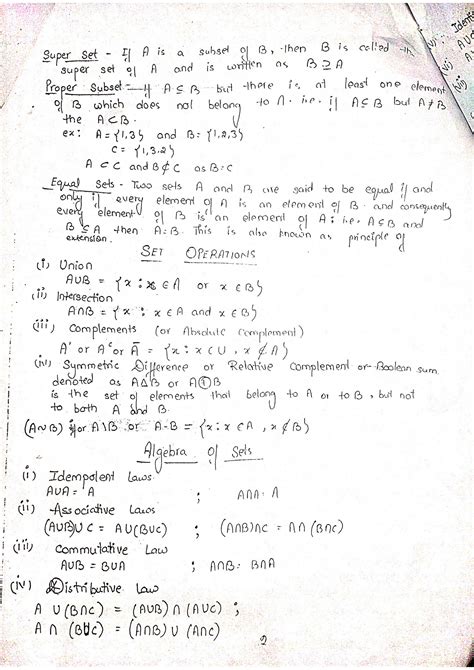 Super Set - If A is a subset of B, then B is called the
super set of A and is written as B ⊇ A
Proper Subset:- If A ⊆ B but there is at least one element
of B which does not belong to A. i.e. if A ⊆ B but A ≠ B
the A ⊂ B.
ex: A = {1,3} and B = {1,2,3}
C = {1,3,2}
A ⊂ C and B ⊄ C as B = C
Equal Sets - Two sets A and B are said to be equal if and
only if every element of A is an element of B. and consequently
every element of B is an element of A i.e. A ⊆ B and
B ⊆ A then A = B. This is also known as principle of
extension.
SET OPERATIONS
(i) Union
A∪B = {x : x ∈ A or x ∈ B}
(ii) Intersection
A∩B = {x : x ∈ A and x ∈ B}
(iii) Complements (or Absolute Complement)
A' or Aᶜ or Ā = {x : x ∈ U, x ∉ A}
(iv) Symmetric Difference or Relative Complement or Boolean sum
denoted as A∆B or A⊕B
is the set of elements that belong to A or to B, but not
to both A and B.
(A~B) or A\B or A-B = {x : x ∈ A, x ∉ B}
Algebra of Sets
(i) Idempotent Laws
A∪A = A ; A∩A = A
(ii) Associative Laws
(A∪B)∪C = A∪(B∪C) ; (A∩B)∩C = A∩(B∩C)
(iii) Commutative Law
A∪B = B∪A ; A∩B = B∩A
(iv) Distributive Law
A ∪ (B∩C) = (A∪B) ∩ (A∪C) ;
A ∩ (B∪C) = (A∩B) ∪ (A∩C)
2